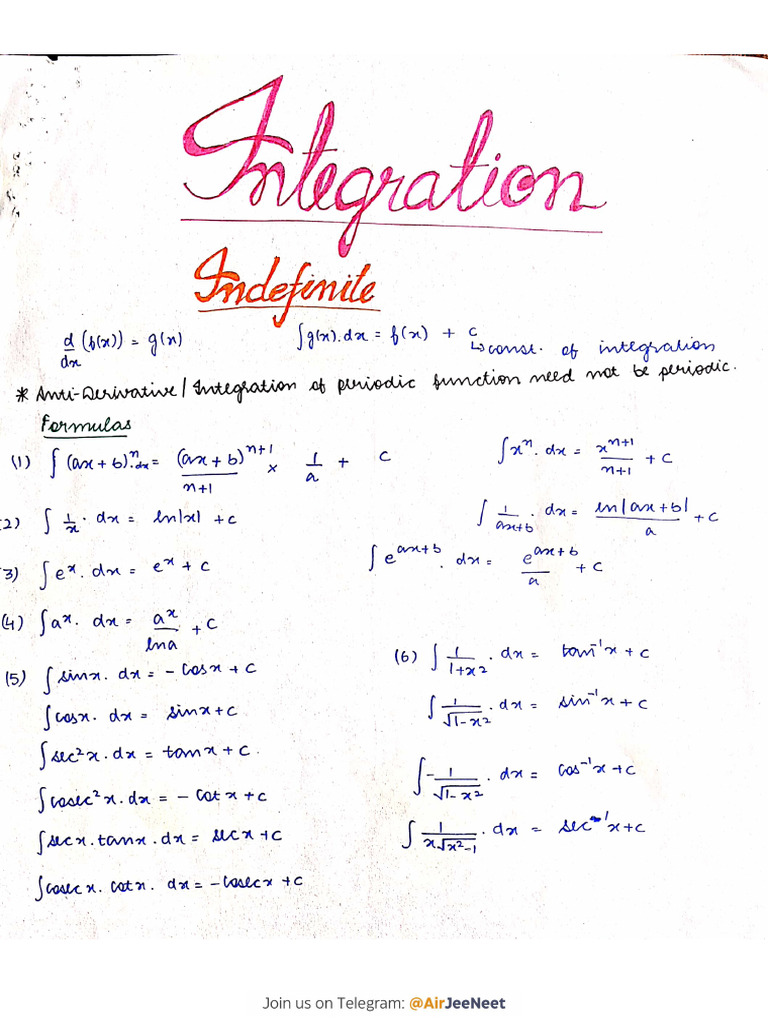 Integration
Indefinite
d/dx (f(x)) = g(x)    ∫g(x).dx = f(x) + c
↳ const. of integration
* Anti-Derivative / Integration of periodic function need not be periodic.
Formulas
(1) ∫(ax+b)ⁿ.dx = (ax+b)ⁿ⁺¹/n+1 × 1/a + c    ∫xⁿ.dx = xⁿ⁺¹/n+1 + c
(2) ∫1/x.dx = ln|x| + c    ∫1/ax+b.dx = ln|ax+b|/a + c
(3) ∫eˣ.dx = eˣ + c    ∫e^ax+b.dx = e^ax+b/a + c
(4) ∫aˣ.dx = aˣ/lna + c
(5) ∫sinx.dx = -cosx + c    (6) ∫1/1+x².dx = tan⁻¹x + c
∫cosx.dx = sinx + c    ∫1/√1-x².dx = sin⁻¹x + c
∫sec²x.dx = tanx + c.
∫cosec²x.dx = -cotx + c    ∫-1/√1-x².dx = cos⁻¹x + c
∫secx.tanx.dx = secx + c    ∫1/x√x²-1.dx = sec⁻¹x + c
∫cosecx.cotx.dx = -cosecx + c
Join us on Telegram: @AirJeeNeet